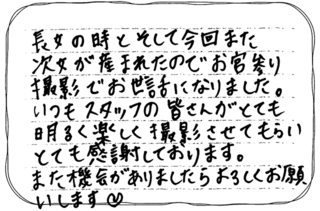 長女の時とそして今回また
次女が産まれたのでお宮参り
撮影でお世話になりました。
いつもスタッフの皆さんがとても
明るく楽しく撮影させてもらい
とても感謝しております。
また機会がありましたらよろしくお願
いします♡